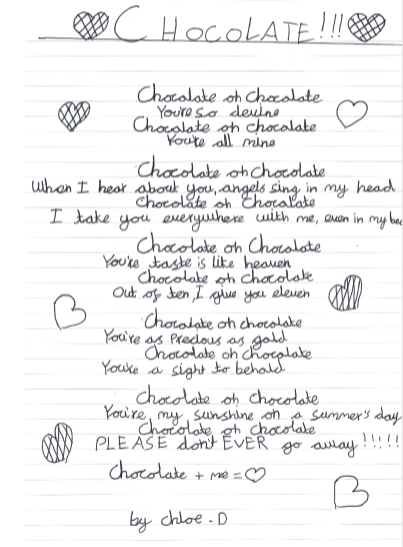 CHOCOLATE!!!
Chocolate oh Chocolate
You're so devine
Chocolate oh chocolate
You're all mine
Chocolate oh Chocolate
When I hear about you, angels sing in my head
Chocolate oh Chocolate
I take you everywhere with me, even in my bed
Chocolate oh Chocolate
You're taste is like heaven
Chocolate oh chocolate
Out of ten, I give you eleven
Chocolate oh chocolate
You're as precious as gold
Chocolate oh chocolate
You're a sight to behold
Chocolate oh Chocolate
You're, my sunshine on a summer's day
Chocolate oh chocolate
PLEASE don't EVER go away!!!!!
Chocolate + me = ♡
by chloe.D